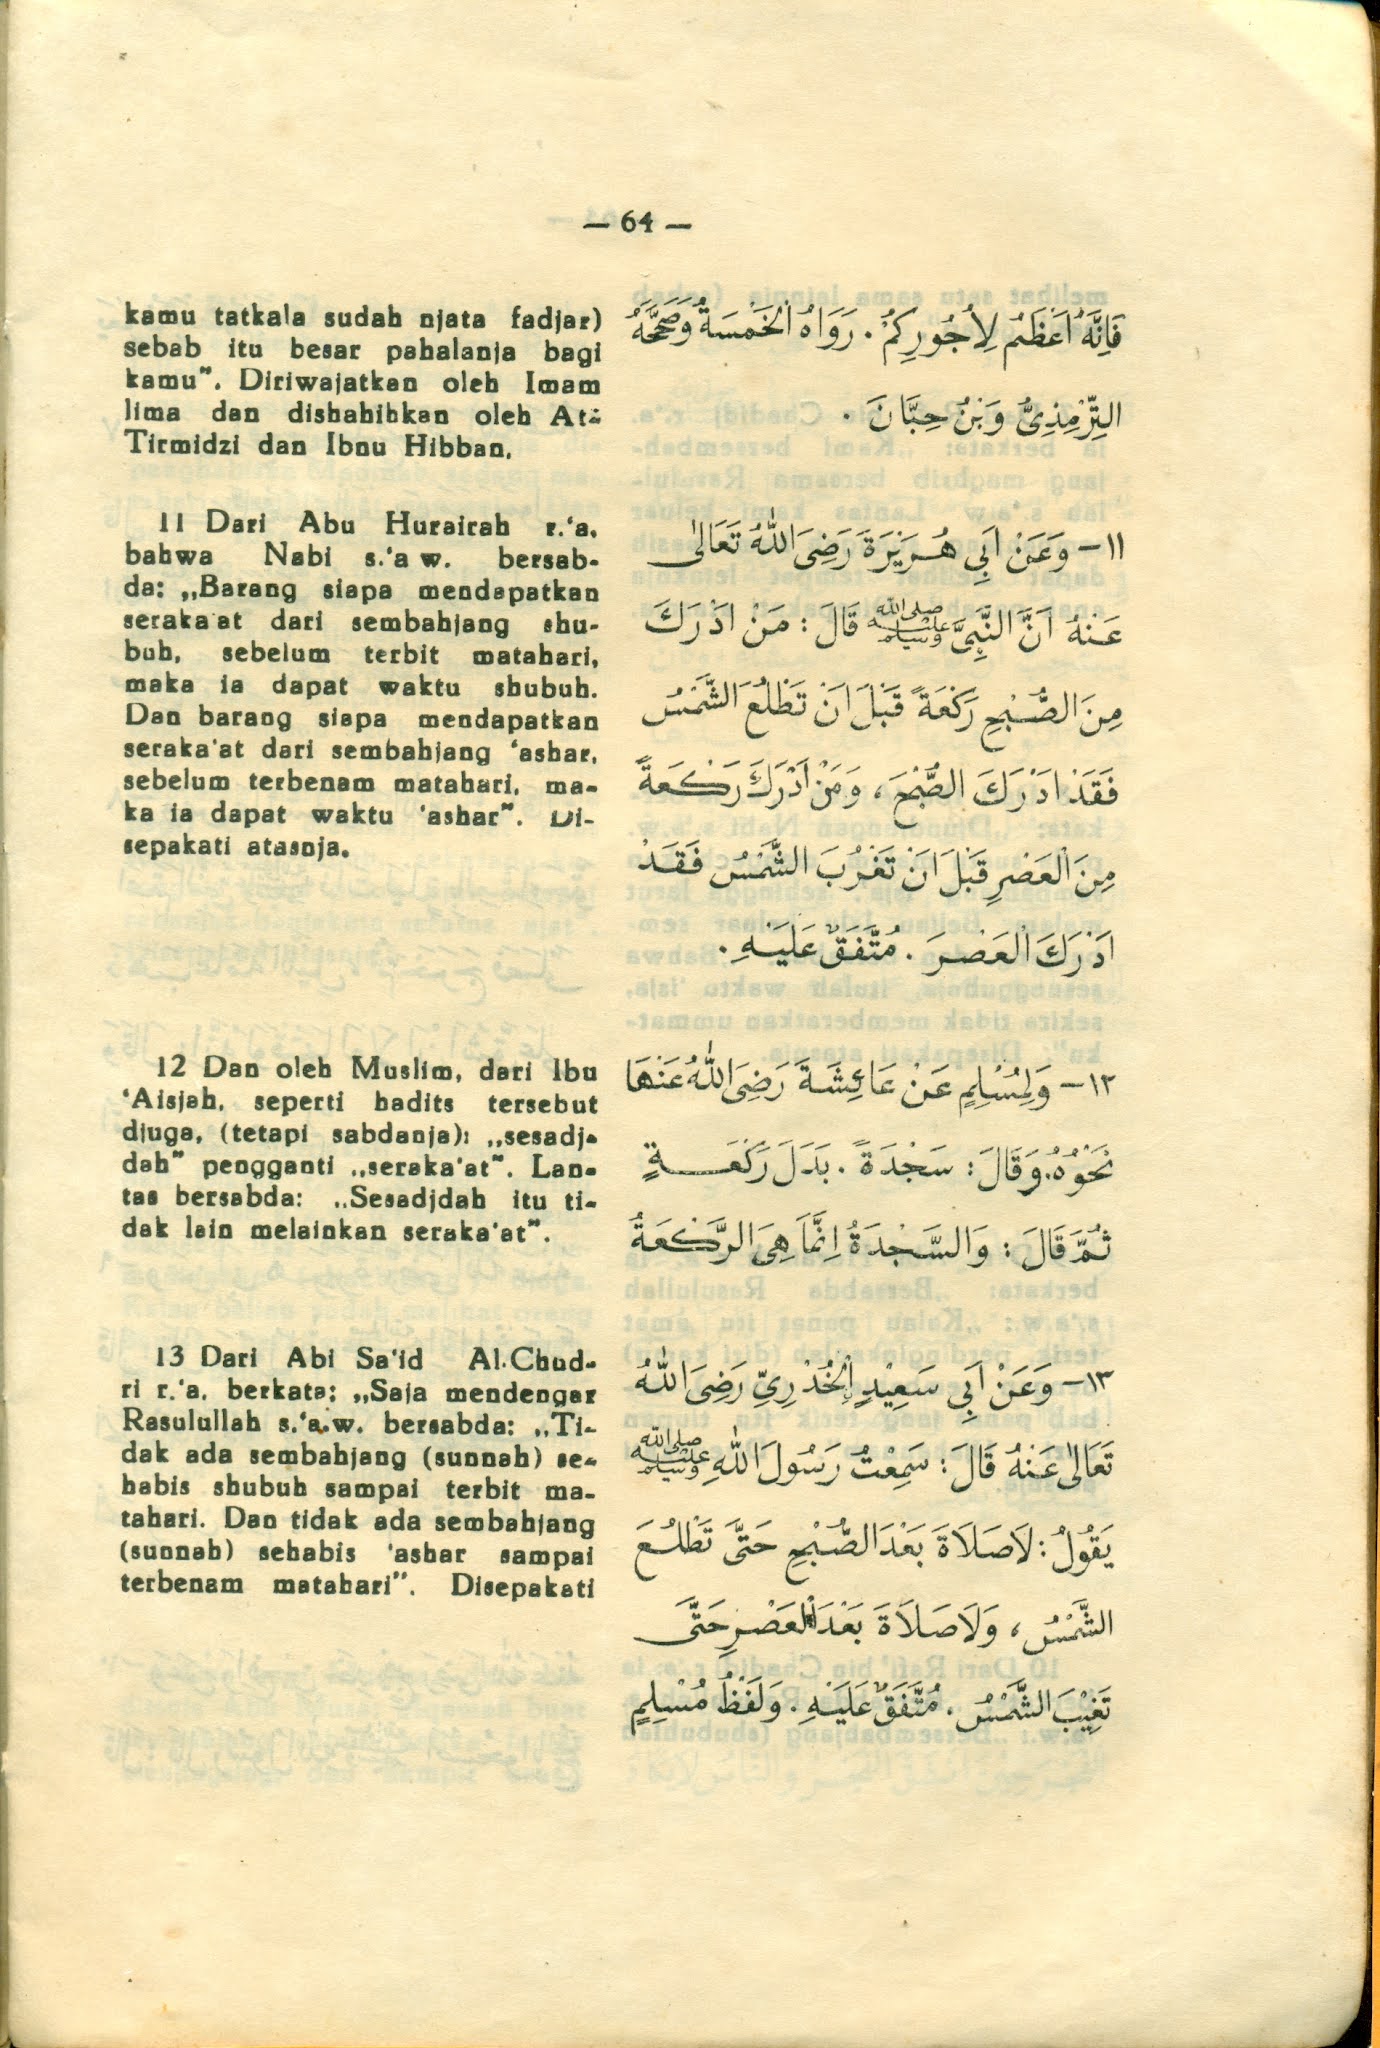 — 64 —
kamu tatkala sudah njata fadjar)
sebab itu besar pahalanja bagi
kamu”. Diriwajatkan oleh Imam
lima dan dishahihkan oleh At-
Tirmidzi dan Ibnu Hibban.
11 Dari Abu Hurairah r.‘a.
bahwa Nabi s.‘a w. bersab-
da: „Barang siapa mendapatkan
seraka‘at dari sembahjang shu-
buh, sebelum terbit matahari,
maka ia dapat waktu shubuh.
Dan barang siapa mendapatkan
seraka‘at dari sembahjang ‘ashar,
sebelum terbenam matahari, ma-
ka ia dapat waktu ‘ashar”. Di-
sepakati atasnja.
12 Dan oleh Muslim, dari Ibu
‘Aisjah, seperti hadits tersebut
djuga, (tetapi sabdanja): „sesadj-
dah” pengganti „seraka‘at”. Lan-
tas bersabda: „Sesadjdah itu ti-
dak lain melainkan seraka‘at”.
13 Dari Abi Sa‘id Al-Chud-
ri r.‘a. berkata: „Saja mendengar
Rasulullah s.‘a.w. bersabda: „Ti-
dak ada sembahjang (sunnah) se-
habis shubuh sampai terbit ma-
tahari. Dan tidak ada sembahjang
(sunnah) sehabis ‘ashar sampai
terbenam matahari”. Disepakati
فَاِنَّهُ اَعْظَمُ لِاُجُورِكُمْ . رَوَاهُ الْخَمْسَةُ وَصَحَّحَهُ
التِّرْمِذِىُّ وَبْنُ حِبَّانَ .
١١- وَعَنْ اَبِي هُرَيْرَةَ رَضِىَ اللّٰهُ تَعَالٰى
عَنْهُ اَنَّ النَّبِىَّ ﷺ قَالَ : مَنْ اَدْرَكَ
مِنَ الصُّبْحِ رَكْعَةً قَبْلَ اَنْ تَطْلُعَ الشَّمْسُ
فَقَدْ اَدْرَكَ الصُّبْحَ ، وَمَنْ اَدْرَكَ رَكْعَةً
مِنَ الْعَصْرِ قَبْلَ اَنْ تَغْرُبَ الشَّمْسُ فَقَدْ
اَدْرَكَ الْعَصْرَ . مُتَّفَقٌ عَلَيْهِ .
١٢- وَلِمُسْلِمٍ عَنْ عَائِشَةَ رَضِىَ اللّٰهُ عَنْهَا
نَحْوُهُ . وَقَالَ : سَجْدَةً . بَدَلَ رَكْعَةٍ
ثُمَّ قَالَ : وَالسَّجْدَةُ اِنَّمَا هِىَ الرَّكْعَةُ
١٣- وَعَنْ اَبِي سَعِيْدٍ الْخُدْرِىِّ رَضِىَ اللّٰهُ
تَعَالٰى عَنْهُ قَالَ : سَمِعْتُ رَسُولَ اللّٰهِ ﷺ
يَقُولُ : لَا صَلَاةَ بَعْدَ الصُّبْحِ حَتَّى تَطْلُعَ
الشَّمْسُ ، وَلَا صَلَاةَ بَعْدَ الْعَصْرِ حَتَّى
تَغِيْبَ الشَّمْسُ . مُتَّفَقٌ عَلَيْهِ . وَلَفْظُ مُسْلِمٍ